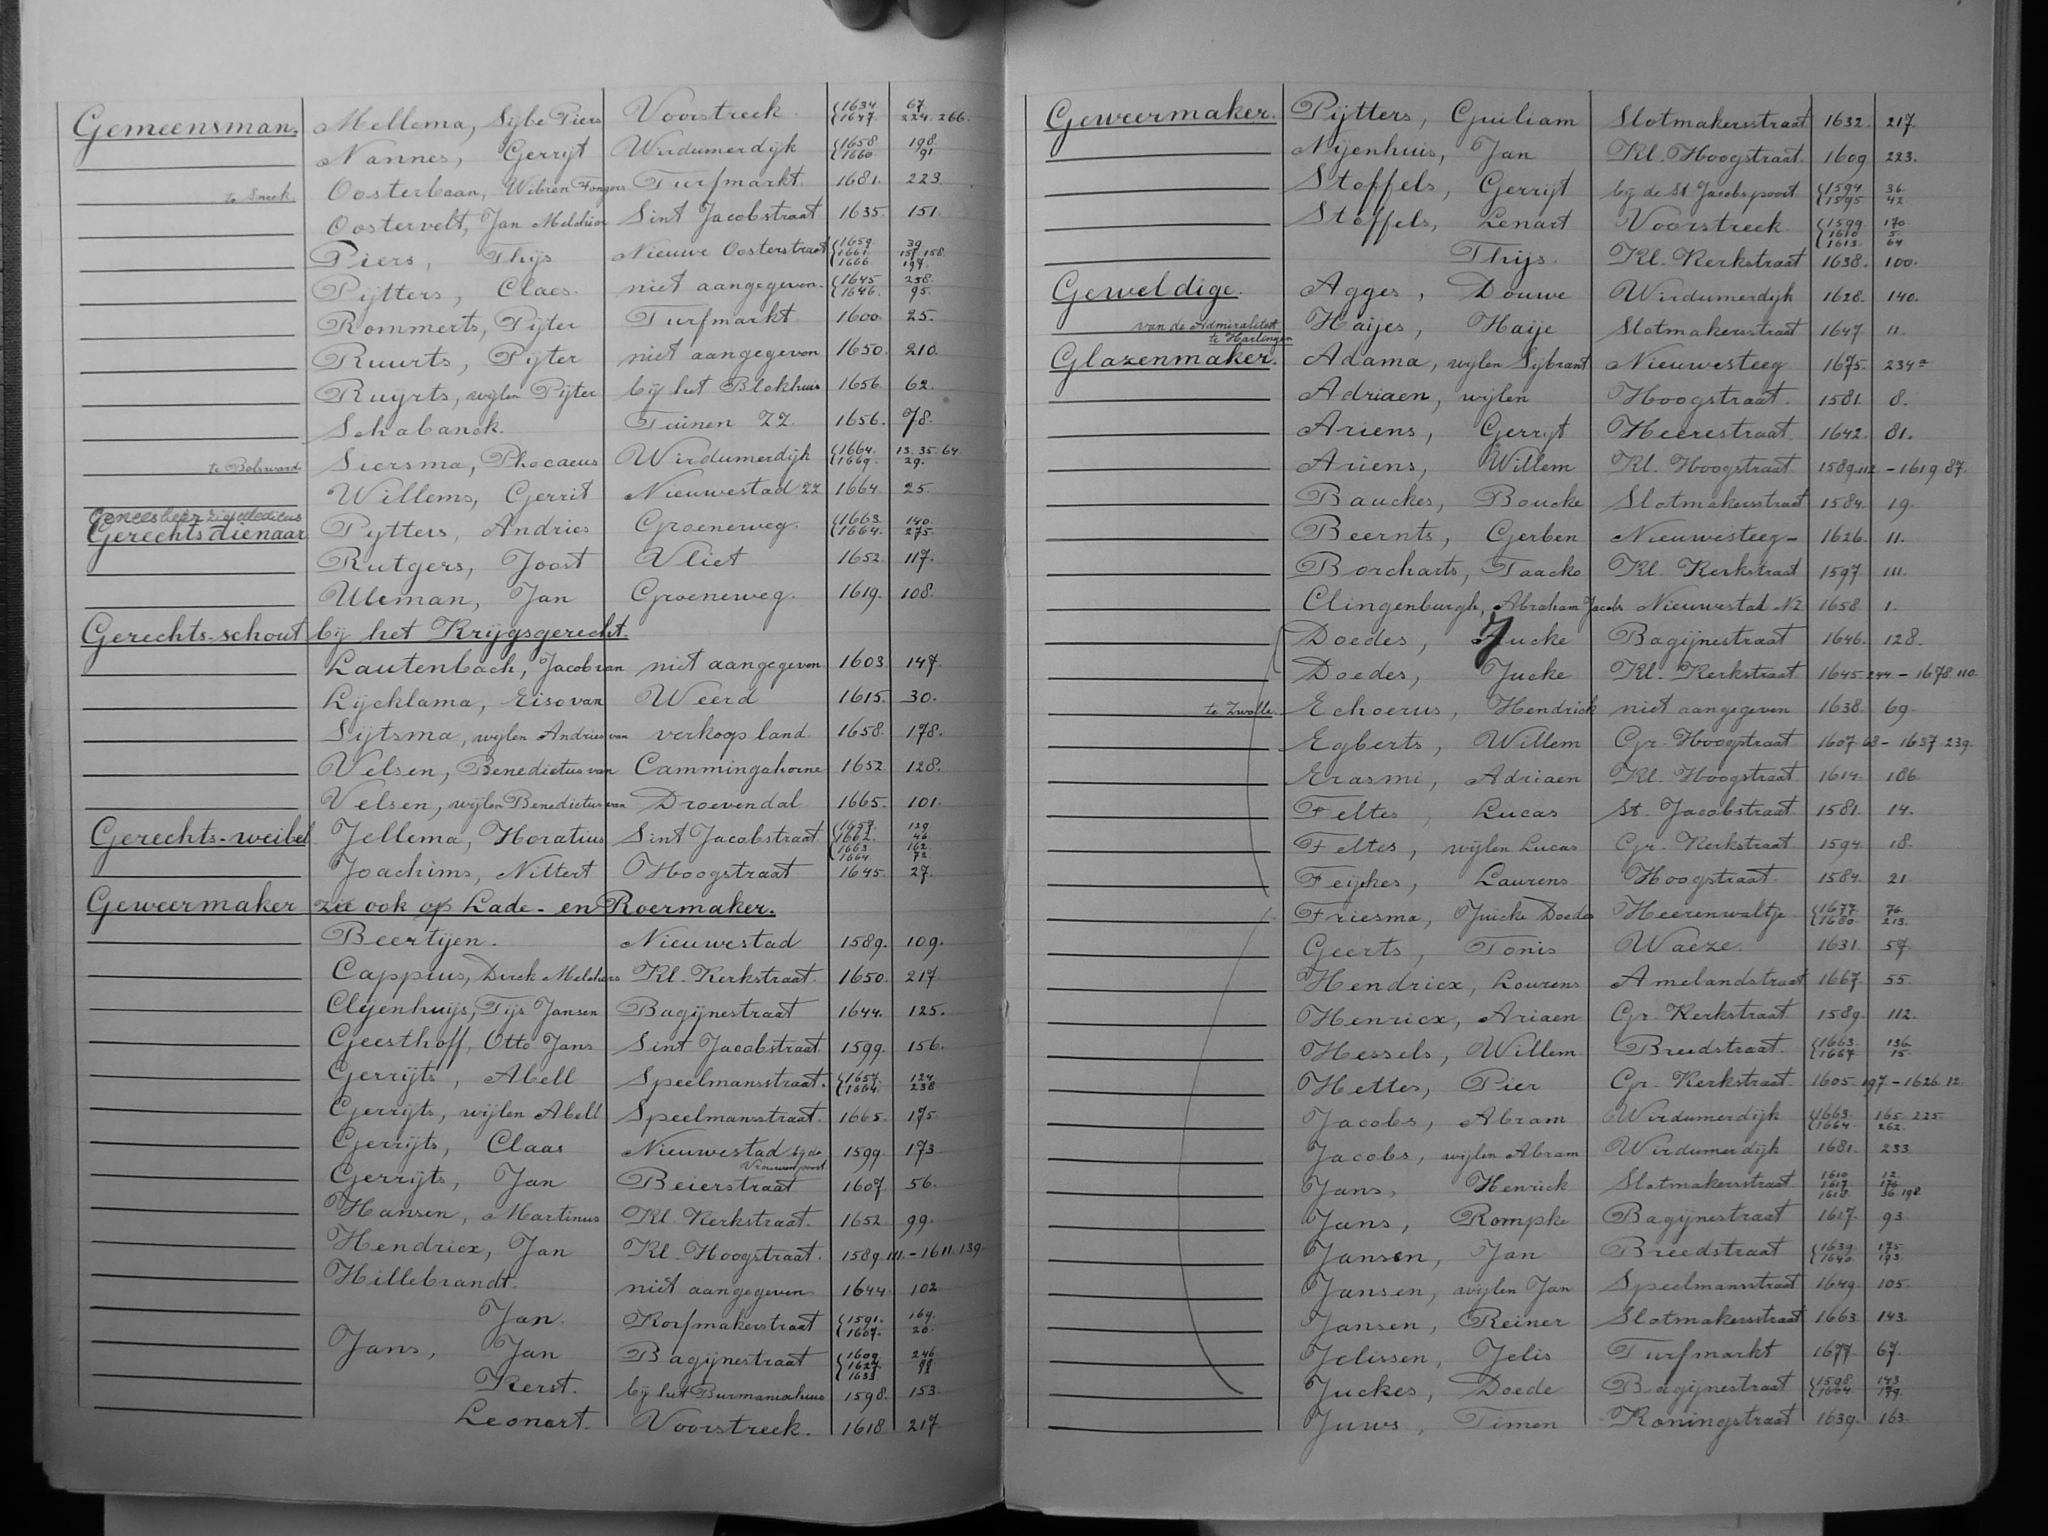 Gemeensman. Mellema, Sijbe Piers Voorstreek. 1634. 67. 1647. 224. 266.
Nannes, Gerrijt Wirdumerdijk 1658. 198. 1660. 91.
te Sneek. Oosterbaan, Wibren Fongers Turfmarkt. 1681. 223.
Oostervelt, Jan Melchior Sint Jacobstraat 1635. 151.
Piers, Thijs Nieuwe Oosterstraat 1659. 39. 1661. 157. 158. 1666. 197.
Pijtters, Claes. niet aangegeven. 1645 238. 1646. 95.
Rommerts, Pijter Turfmarkt. 1600. 25.
Ruurts, Pijter niet aangegeven 1650. 210.
Ruijrts, wijlen Pijter bij het Blokhuis 1656. 62.
Schabanck. Tuinen ZZ. 1656. 78.
te Bolsward. Siersma, Phocaeus Wirdumerdijk 1664. 13. 35. 64 1669. 29.
Willems, Gerrit Nieuwestad ZZ 1664. 25.
Geneesheer zie Medicus
Gerechtsdienaar Pytters, Andries Groenerweg. 1663. 140. 1664. 275.
Rutgers, Joost Vliet 1652. 117.
Uleman, Jan Groenerweg. 1619. 108.
Gerechts-schout bij het Krijgsgerecht.
Lautenbach, Jacob van niet aangegeven 1603. 147.
Lijcklama, Eiso van Weerd 1615. 30.
Sijtsma, wijlen Andries van verkoop land 1658. 178.
Velsen, Benedictus van Cammingahorne 1652 128.
Velsen, wijlen Benedictus van Droevendal 1665. 101.
Gerechts-weibel Jellema, Horatius Sint Jacobstraat 129 1662. 46 1663 162 1664. 72
Joachims, Nittert Hoogstraat 1645. 27.
Geweermaker zie ook op Lade- en Roermaker.
Beertijen. Nieuwestad 1589. 109.
Cappius, Dirck Melchiors Kl. Kerkstraat. 1650. 217
Cleijenhuijs, Tijs Jansen Bagijnestraat 1644. 125.
Geesthoff, Otto Jans Sint Jacobstraat 1599. 156.
Gerrijts, Abell Speelmansstraat. 1657. 124. 1664. 238
Gerrijts, wijlen Abell Speelmansstraat. 1665. 175.
Gerrijts, Claas Nieuwestad bij de Vrouwenpoort 1599. 173
Gerrijts, Jan Beierstraat 1607. 56.
Hansen, Martinus Kl. Kerkstraat. 1652. 99.
Hendricx, Jan Kl. Hoogstraat. 1589. 111. - 1611. 139.
Hillebrandt. niet aangegeven 1644 102
Jan. Korfmakerstraat 1591. 164. 1607. 26.
Jans, Jan Bagijnestraat 1609. 246 1627. 1633.
Kerst. bij het Burmaniahuis 1598. 153.
Leonart. Voorstreek. 1618 217.
Geweermaker. Pijtters, Guiliam Slotmakersstraat 1632. 217.
Nijenhuis, Jan Kl. Hoogstraat. 1609 223.
Stoffels, Gerrijt bij de St. Jacobspoort 1594. 36 1595 42
Stoffels, Lenart Voorstreek 1599. 170. 1610 5. 1613. 64
Thijs. Kl. Kerkstraat 1638. 100.
Geweldige. Agges, Douwe Wirdumerdijk 1628. 140.
van de Admiraliteit te Harlingen Haijes, Haije Slotmakersstraat 1647. 11.
Glazenmaker. Adama, wijlen Sijbrant Nieuwesteeg 1675. 234a
Adriaen, wijlen Hoogstraat. 1581. 8.
Ariens, Gerrijt Heerestraat. 1642. 81.
Ariens, Willem Kl. Hoogstraat 1589. 112 - 1619 87.
Bauckes, Boucke Slotmakersstraat 1584. 19.
Beernts, Gerben Nieuwesteeg- 1626. 11.
Borcharts, Taacke Kl. Kerkstraat 1597 111.
Clingenburgh, Abraham Jacobs Nieuwestad NZ 1658. 1.
Doedes, Jucke Bagijnestraat 1646. 128.
Doedes, Jucke Kl. Kerkstraat 1645. 244 - 1678. 110.
te Zwolle. Echoerus, Hendrick niet aangegeven 1638. 69.
Egberts, Willem Gr. Hoogstraat 1607 68 - 1637 239.
Erasmi, Adriaen Kl. Hoogstraat 1614. 186.
Feltes, Lucas St. Jacobstraat 1581. 14.
Feltes, wijlen Lucas Gr. Kerkstraat 1594. 18.
Feijkes, Laurens Hoogstraat. 1584. 21.
Friesma, Juicke Doedes Heerenwaltje. 1677. 76. 1680. 213.
Geerts, Tonis Waeze. 1631. 57.
Hendricx, Lourens Amelandstraat 1667. 55.
Henricx, Ariaen Gr. Kerkstraat 1589. 112.
Hessels, Willem Breedstraat. 1663. 136. 1667 15.
Hettes, Pier Gr. Kerkstraat. 1605. 197 - 1626. 12.
Jacobs, Abram Wirdumerdijk 1663. 165. 225. 1664. 262.
Jacobs, wijlen Abram Wirdumerdijk 1681. 233.
Jans, Henrick Slotmakersstraat. 1610 12. 1617. 176. 1618. 36. 198.
Jans, Rompke Bagijnestraat 1617. 93.
Jansen, Jan Breedstraat 1639. 175. 1640. 193.
Jansen, wijlen Jan Speelmansstraat 1649. 105.
Jansen, Reiner Slotmakersstraat 1663. 143.
Jelissen, Jelis Turfmarkt 1677. 67.
Juckes, Doede Bagijnestraat 1598. 143. 1604. 179.
Juws, Timen Koningstraat 1639. 163.